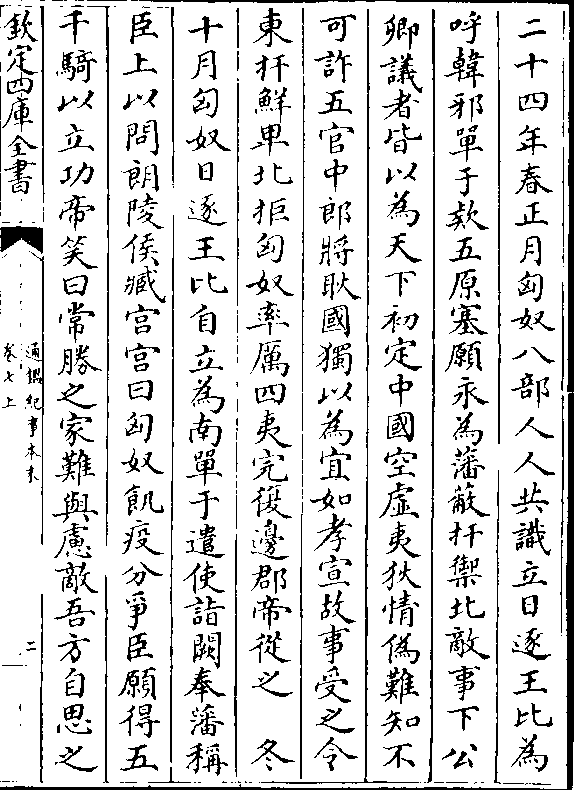 二十四年春正月匈奴八部人人共識立日逐王比為
呼韓邪單于欵五原塞願永為藩蔽扞禦北敵事下公
卿議者皆以為天下初定中國空虛夷狄情偽難知不
可許五官中郎將耿國獨以為宜如孝宣故事受之令
東扞鮮卑北拒匈奴率厲四夷完復邊郡帝從之　冬
十月匈奴日逐王比自立為南單于遣使詣闕奉藩稱
臣上以問朗陵侯臧宮宮曰匈奴飢疫分爭臣願得五
千騎以立功帝笑曰常勝之家難與慮敵吾方自思之
欽定四庫全書
通鑑紀事本末
卷七上
二